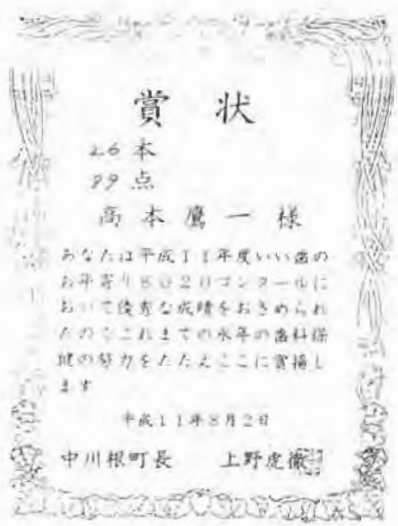 賞状
26本
99点
高本鷹一様
あなたは平成11年度いい歯の
お年寄り8020コンクールに
おいて優秀な成績をおさめられ
たのでこれまでの永年の歯科保
健の努力をたたえここに賞揚し
ます
平成11年8月2日
中川根町長 上野虎徹